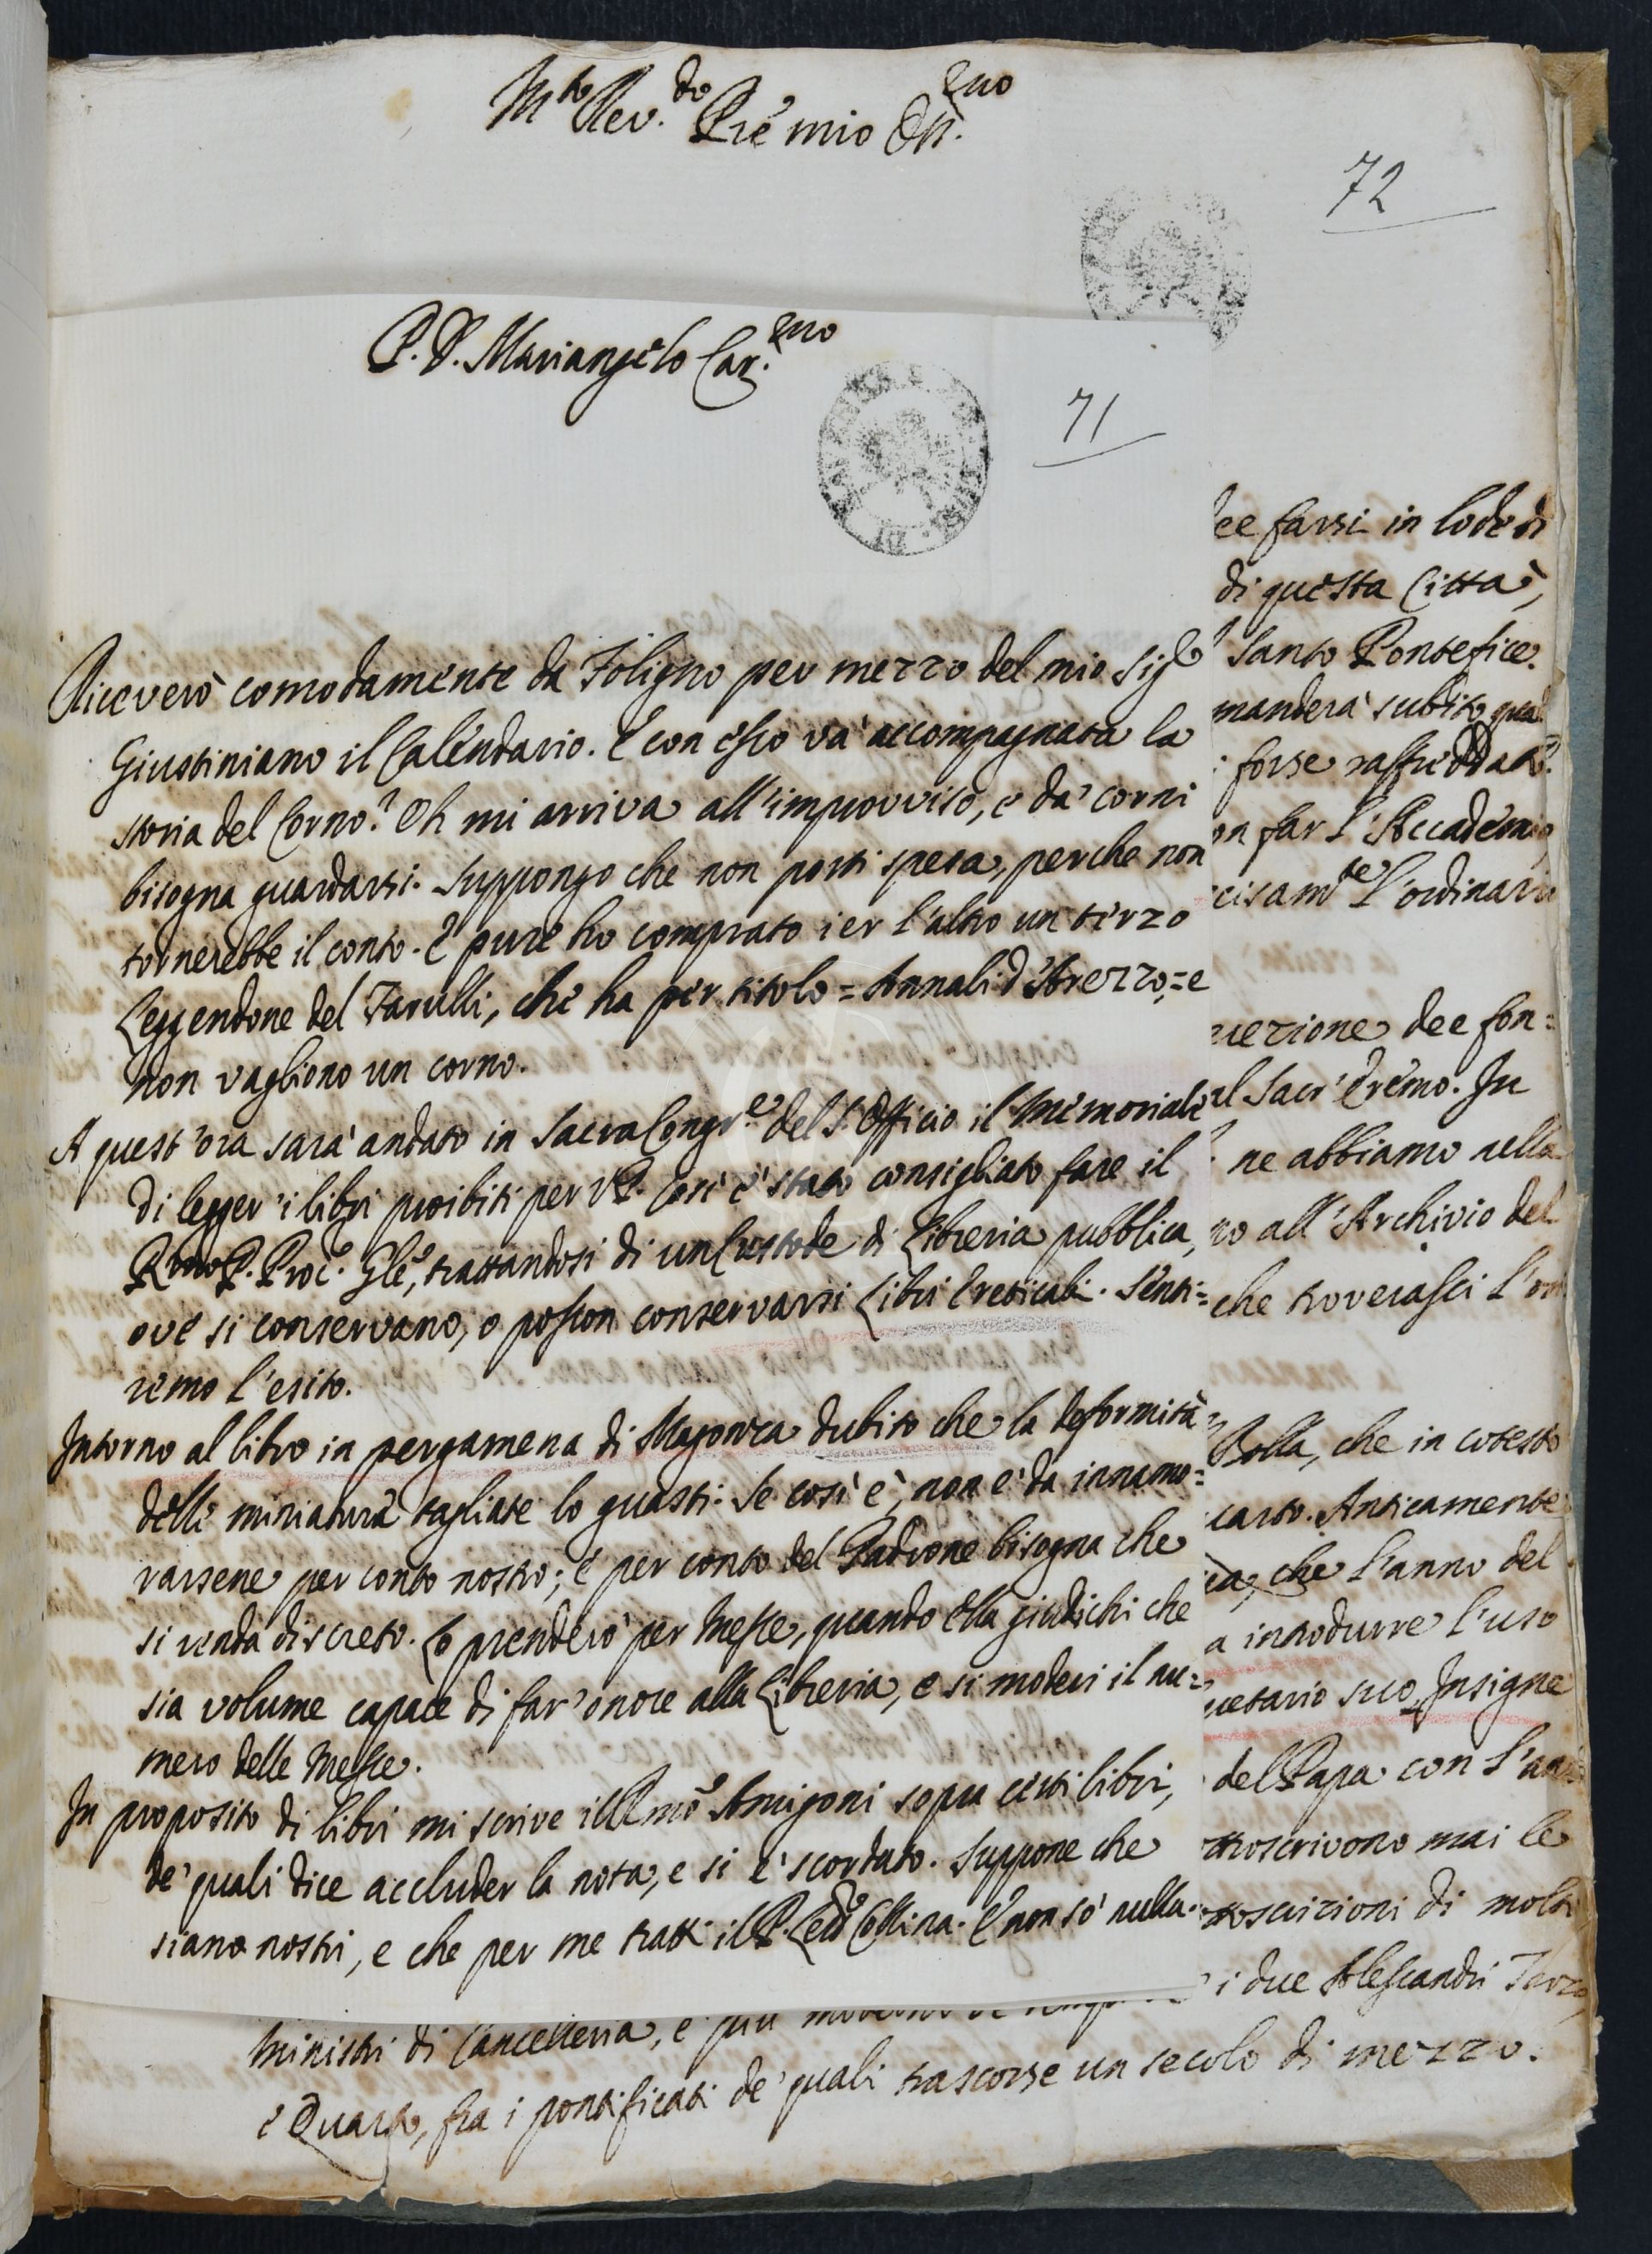 Mto Rev.do Pre mio Oss.mo
72
P. D. Mariangelo Car.mo
71
Riceverò comodamente da Foligno per mezzo del mio Sigr
Giustiniano il Calendario. E con esso và accompagnata la
storia del Corno? Oh mi arriva all'improvviso, e da' corni
bisogna guardarsi. Suppongo che non porti spesa, perche non
tornerebbe il conto. E pure ho comprato ier l'altro un terzo
Leggendone del Farulli, che ha per titolo = Annali d'Arezzo, = e
non vagliono un corno.
A quest'ora sarà andato in Sacra Congr.e del S. Officio il Memoriale
di legger' i libri proibiti per VP. Così è stato consigliato fare il
Rmo P. Proc. Gle, trattandosi di un Custode di Libreria pubblica,
ove si conservano, o posson conservarsi Libri Ereticali. Senti=
remo l'esito.
Intorno al libro in pergamena di Magonza dubito che la deformità
delle miniature tagliate lo guasti. Se così è, non è da innamo=
rarsene per conto nostro; e per conto del Padrone bisogna che
si renda discreto. Lo prenderò per Messe, quando Ella giudichi che
sia volume capace di far' onore alla Libreria, e si moderi il nu=
mero delle Messe.
In proposito di libri mi scrive il Rmo Amigoni sopra certi libri,
de' quali dice accluder la nota, e si è scordato. Suppone che
siano nostri, e che per me tratti il P. Collina. E non sò nulla.
ee farsi in lode di
di questa Città,
Santo Pontefice.
manderà subito
forse raffreddata?
on far l'Accademia
cisamte l'ordinario
uezione dee fon=
al Sacr' Eremo. In
ne abbiamo nella
no all'Archivio del
che troverassi l'
Bolla, che in cotesto
carto. Anticamente
ca, che l'anno del
a introdurre l'uso
uetario suo. Insigne
del Papa con l'
ttoscrivono mai le
ttoscrizioni di molti
i due Alessandri Terzo,
Ministri di Cancelleria, e più
e Quarto, fra i pontificati de' quali trascorse un secolo di mezzo.